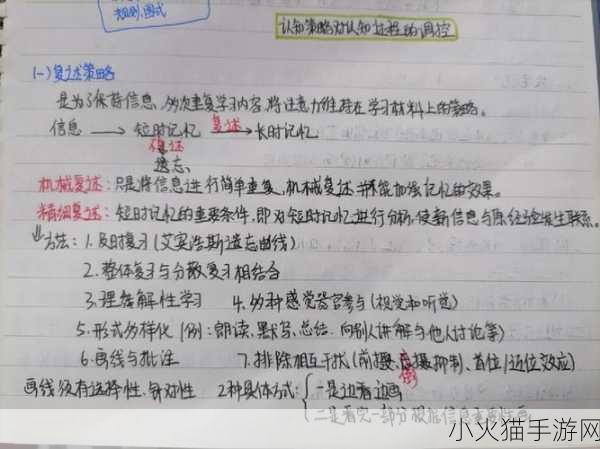 规则、图式
认知策略对认知过程的调控
(一)复述策略
是为了保持信息,多次重复学习内容,将注意力维持在学习材料上的策略。
信息 → 短时记忆 复述→ 长时记忆
遗忘、
机械复述:只是将信息进行简单重复,机械复述并不能加强记忆的效果。
精细复述:短时记忆的重要条件,即对短时记忆进行分析,使新信息与原经验发生联系。
方法:1.及时复习(艾宾浩斯遗忘曲线)
2.整体复习与分散复习相结合
3.理解性学习 4.多种感觉器官参与(视觉和听觉)
5.形式多样化(例:朗读、默写、总结、向别人讲解与他人讨论等)
6.画线与批注 7.排除相互干扰(前摄、倒摄抑制、首位/近位效应)
画线须有选择性、针对性 2种具体方式:一是边看边画
二是看完一部分
小火猫手游网